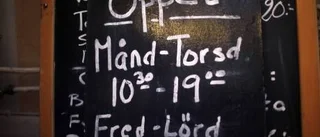 Öppet
Månd-Torsd
10³⁰-19⁰⁰
Fred-Lörd